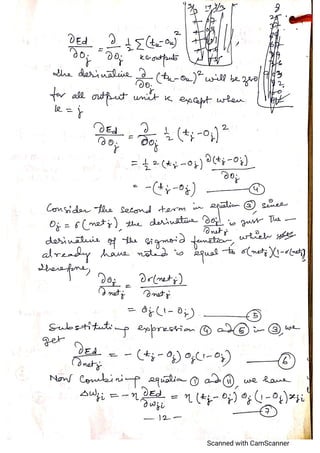 ∂Ed/∂Oj = ∂/∂Oj 1/2 Σ (tk-Ok)²
k∈outputs
The derivative ∂/∂Oj (tk-Ok)² will be zero
for all output unit k except when
k = j
∂Ed/∂Oj = ∂/∂Oj 1/2 (tj-Oj)²
= 1/2 2 (tj-Oj) ∂(tj-Oj)/∂Oj
= -(tj-Oj) — (4)
Consider the second term in equation (3), since
Oj = σ(netj), the derivative ∂Oj/∂netj is just the
derivative of the sigmoid function, which
already have noted is equal to σ(netj)(1-σ(netj))
Therefore,
∂Oj/∂netj = ∂σ(netj)/∂netj
= Oj(1-Oj) — (5)
Substituting expression (4) and (5) in (3), we
get
∂Ed/∂netj = -(tj-Oj) Oj(1-Oj) — (6)
Now Combining equation (1) and (11), we have
Δwji = -η ∂Ed/∂wji = η (tj-Oj) Oj (1-Oj) xji
— (7)
— 12 —
Scanned with CamScanner